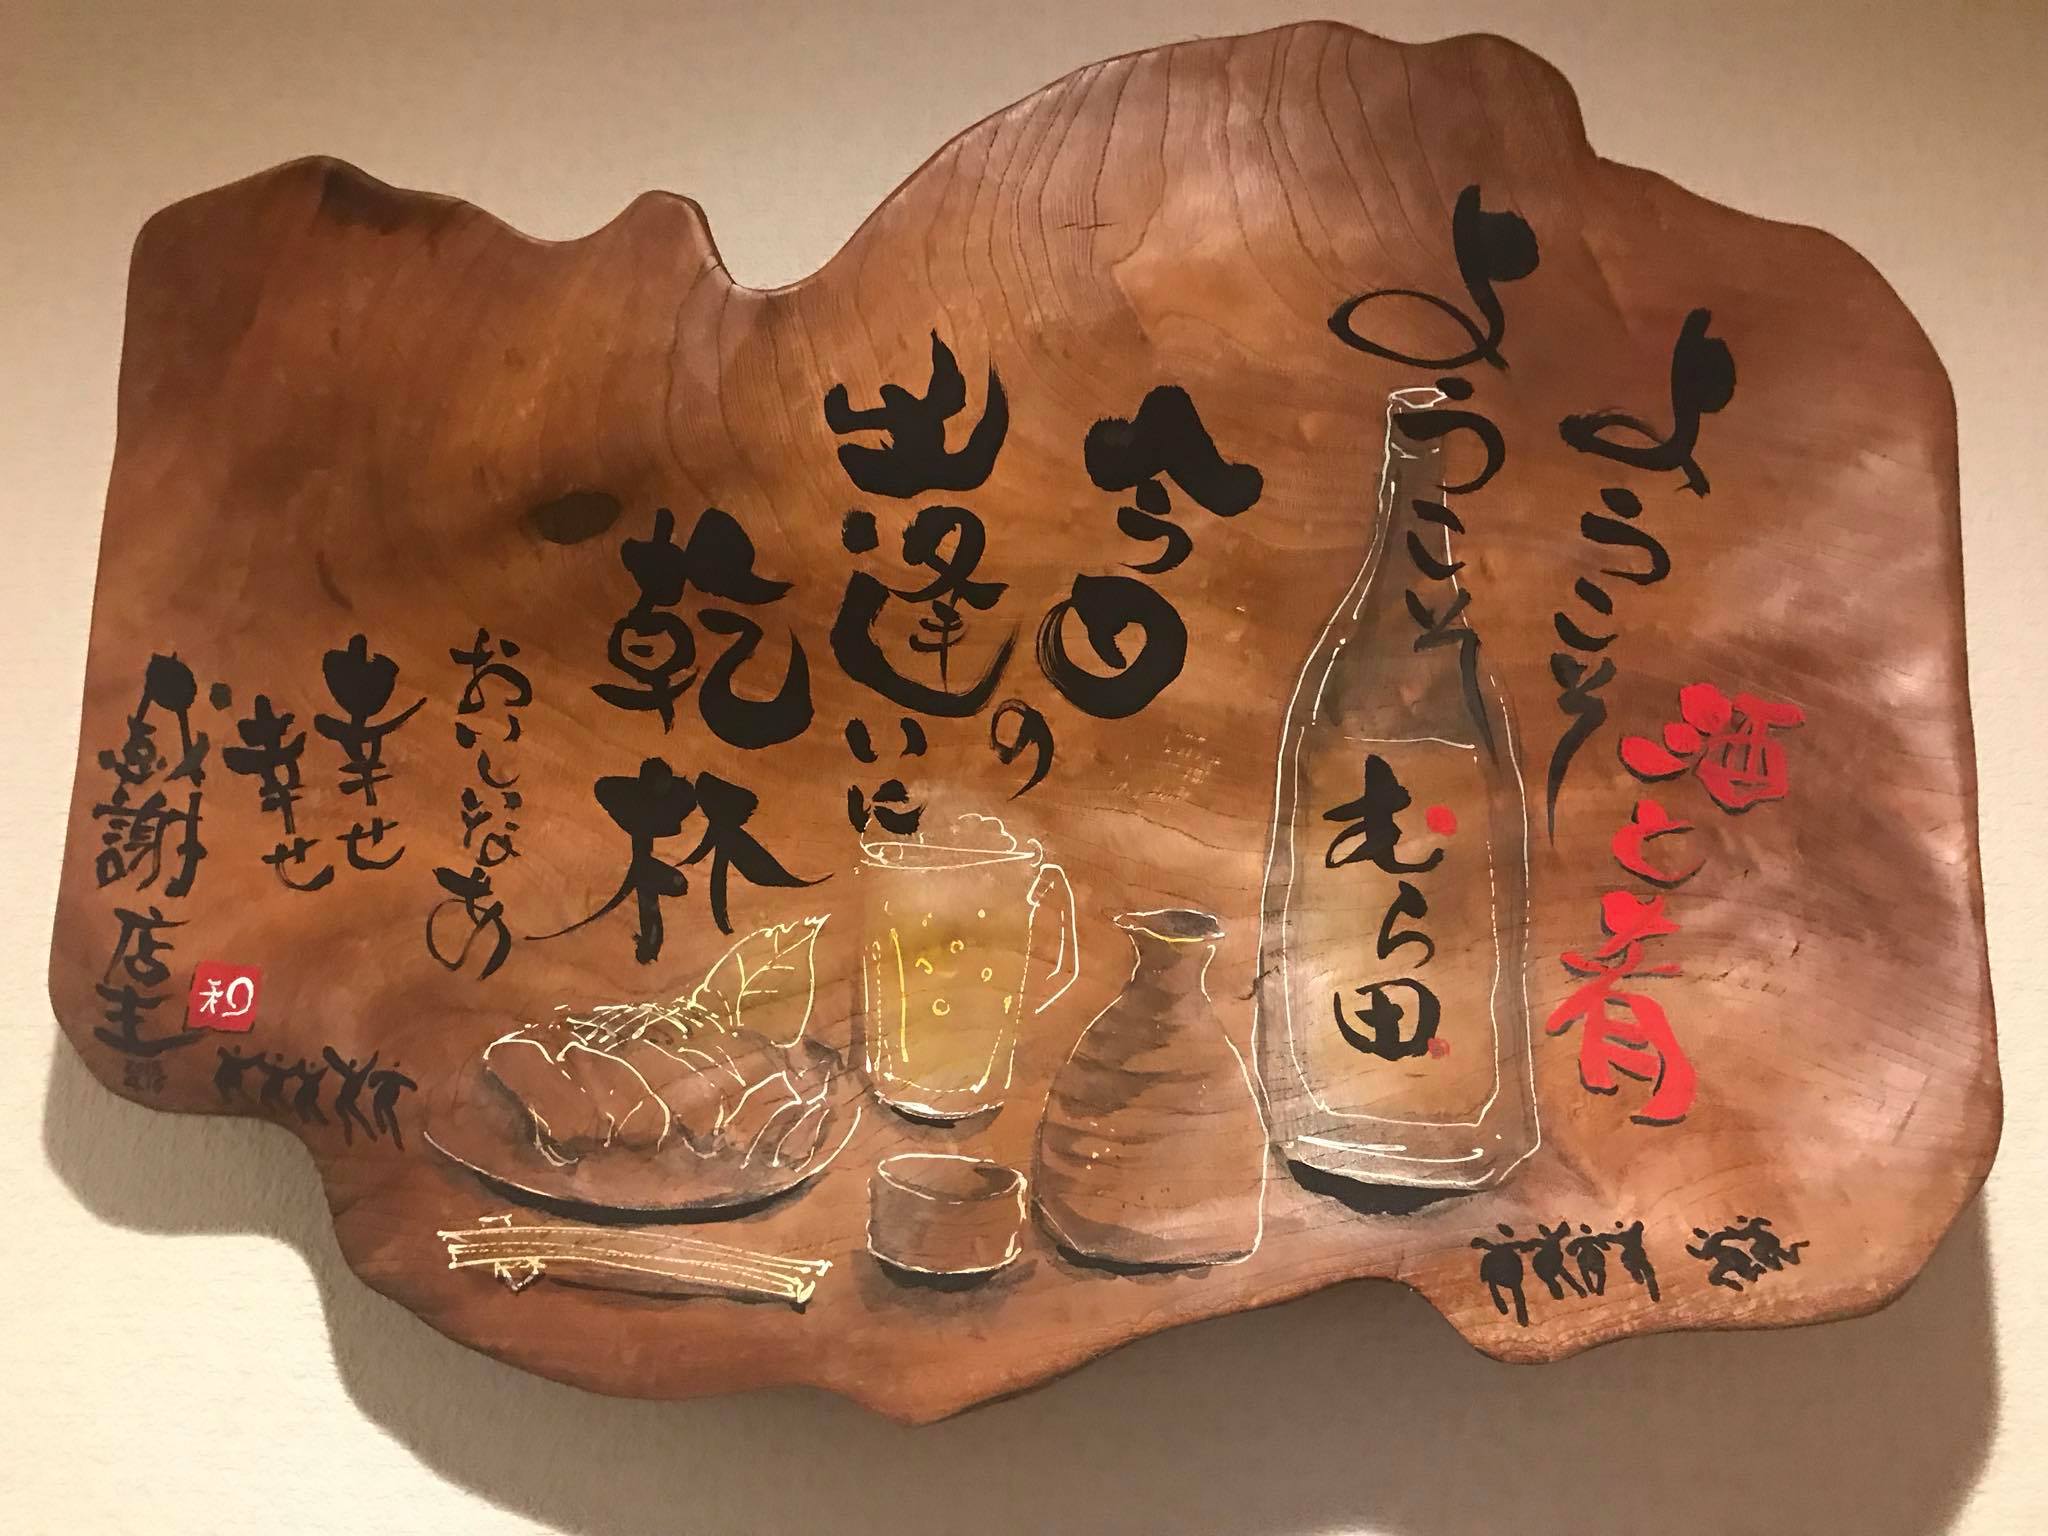 ようこそ
ようこそ
酒と肴
むら田
今日の
出逢いに
乾杯
おいしいなあ
幸せ
幸せ
感謝
店主
利